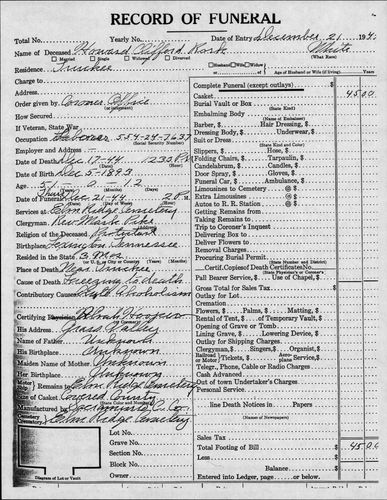 RECORD OF FUNERAL
Total No. Yearly No. Date of Entry December 21 194
Name of Deceased Howard Clifford White
Married Single Widowed Divorced Husband Wife Widow of (What Race)
Residence Truckee Age of Husband or Wife (if living) Years
Charge to
Address
Order given by Coroner Office
How Secured
If Veteran, State War
Occupation Laborer 554-24-7637
(Social Security Number)
Employer and Address
Date of Death Dec 17-44 12:30 P.M.
Date of Birth Dec 5-1893
Age 51 0 12
(Years) (Months) (Days)
Date of Funeral Dec 21-44 2 P.M.
Services at Elm Ridge Cemetery
Clergyman Rev. Mark
Religion of the Deceased Protestant
Birthplace Tennessee
Resided in the State 3 Mon
Place of Death Near Truckee
Cause of Death Freezing to death
Contributory Causes Alcoholism
Certifying Physician Hooper
His Address Grass Valley
Name of Father Unknown
His Birthplace Unknown
Maiden Name of Mother Unknown
Her Birthplace Unknown
Remains to Elm Ridge Cemetery
Size of Casket Covered County
Manufactured by Sacramento C. Co.
Cemetery Elm Ridge Cemetery
Lot No.
Grave No.
Section No.
Block No.
Owner
Diagram of Lot or Vault
Complete Funeral (except outlays)
Casket 45 00
Burial Vault or Box
(State Kind)
Embalming Body
(Name of Embalmer)
Barber, Hair Dressing,
Dressing Body, Underwear,
Suit or Dress
(State Kind and Color)
Slippers, Hose,
Folding Chairs, Tarpaulin,
Candelabrum, Candles,
Door Spray, Gloves,
Funeral Car, Ambulance,
Limousines to Cemetery @
Extra Limousines @
Autos to R. R. Station @
Getting Remains from
Taking Remains to
Trip to Coroner's Inquest
Delivering Box to
Deliver Flowers to
Removal Charges
Procuring Burial Permit
(State Number and District)
Certif. Copies of Death Certificates No.
(State Physician's or Coroner's)
Pall Bearer Service, Use of Chapel,
Gross Total for Sales Tax
Outlay for Lot
Cremation
Flowers, Palms, Matting,
Rental of Tent, of Temporary Vault,
Opening of Grave or Tomb
Lining Grave, Lowering Device,
Outlay for Shipping Charges
Clergyman, Singers, Organist,
Railroad or Motor Tickets, Aeroplane Service
Telegr., Phone, Cable or Radio Charges
Cash Advanced
Out of town Undertaker's Charges
Personal Service
line Death Notices in Papers
(Names of Newspapers)
Sales Tax
Total Footing of Bill 45 00
Less
Balance
Entered into Ledger, page or below.